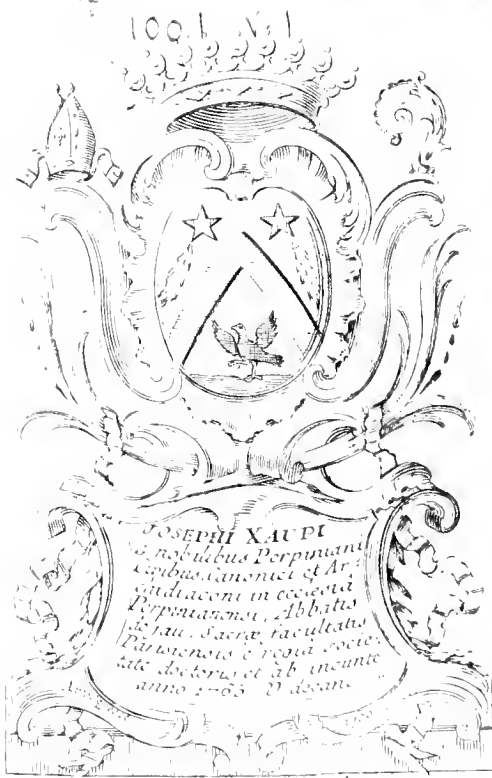 100. N. 1
JOSEPHI XAUPI
è nobilibus Perpiniani
Canonici et Ar-
chidiaconi in ecclesia
Perpinianensi, Abbatis
de Jau, Sacræ facultatis
Parisiensis è regia socie-
tate doctoris et ab ineunte
anno 1766 Decani